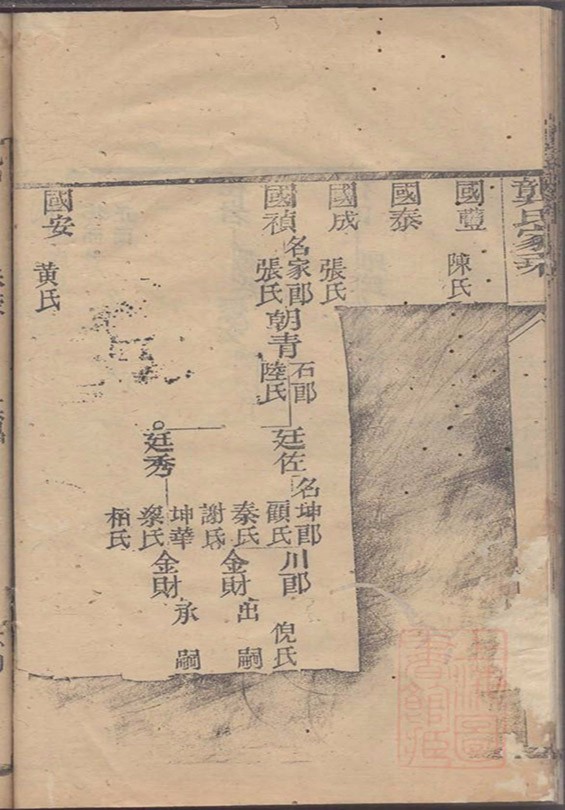 國豐 陳氏
國泰
國成 張氏
國禎 名家郎 張氏
朝青 石郎 陸氏
廷佐 名坤郎 顧氏 秦氏 謝氏
川郎 倪氏
金財 出嗣
廷秀 坤華 梁氏 柏氏
金財 承嗣
國安 黃氏